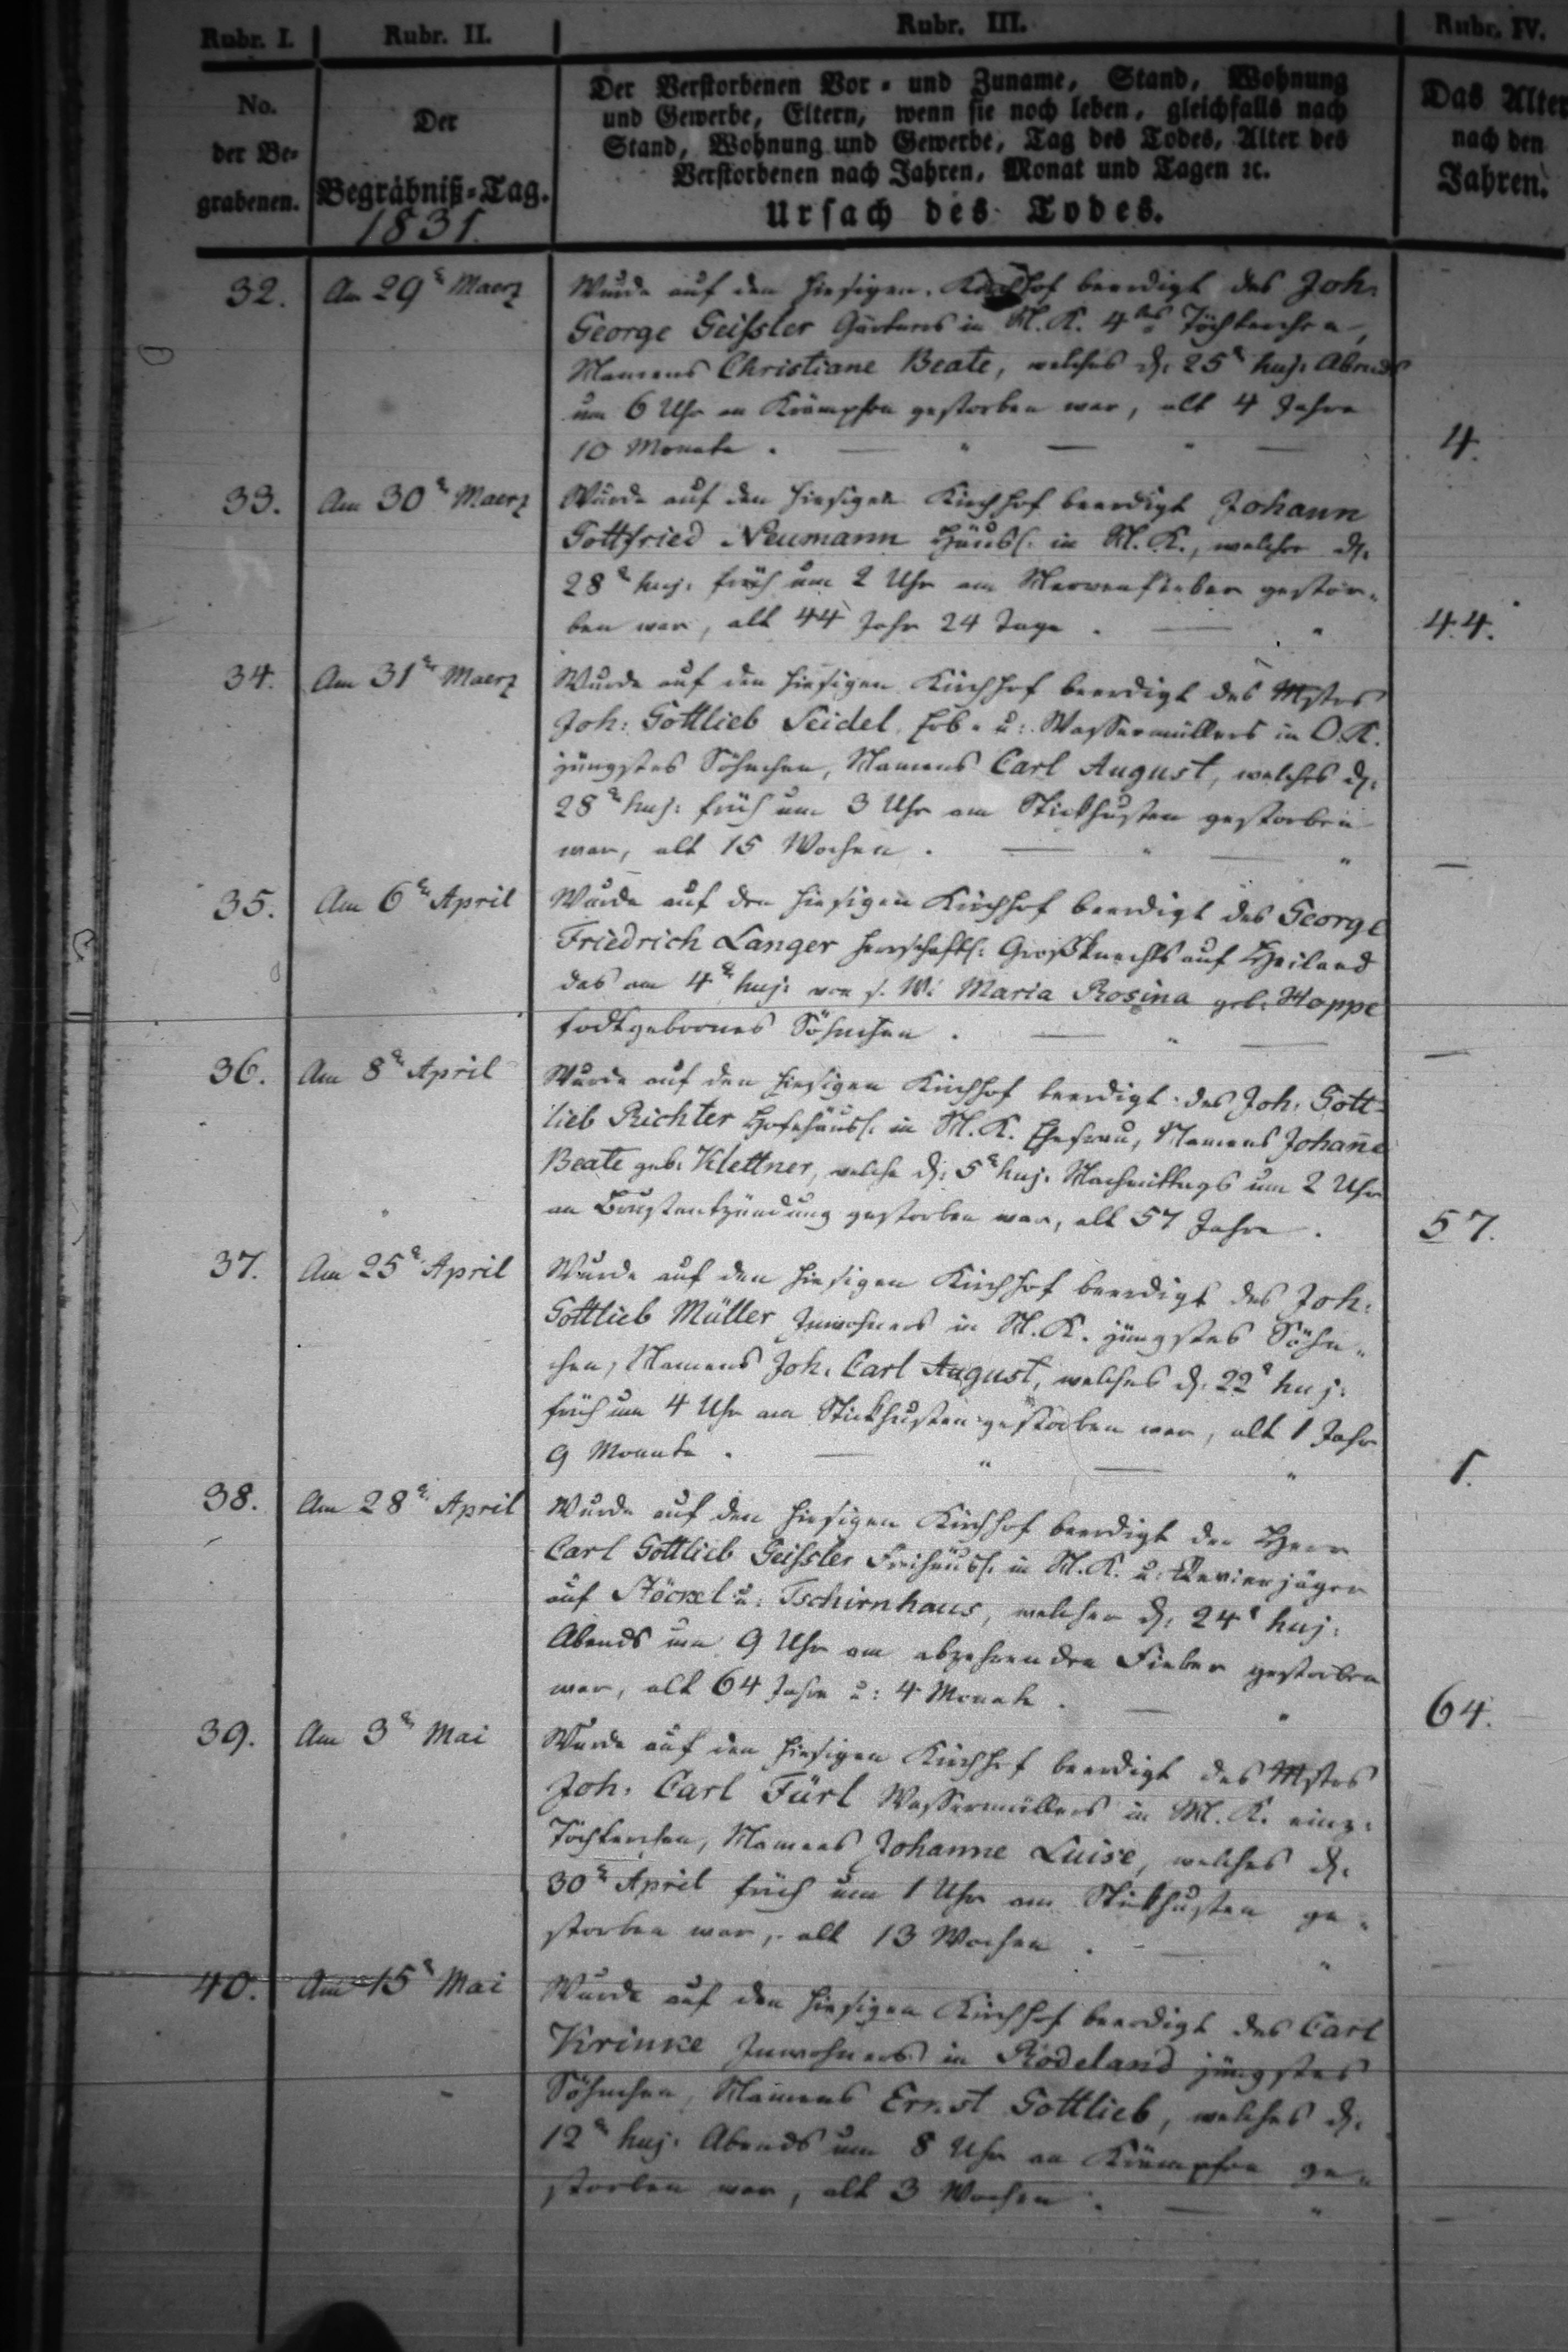 Rubr. I. Rubr. II. Rubr. III. Rubr. IV.
No.
der Be-
grabenen.
Der
Begräbniß-Tag.
1831.
Der Verstorbenen Vor- und Zuname, Stand, Wohnung
und Gewerbe, Eltern, wenn sie noch leben, gleichfalls nach
Stand, Wohnung und Gewerbe, Tag des Todes, Alter des
Verstorbenen nach Jahren, Monat und Tagen ꝛc.
Ursach des Todes.
Das Alter
nach den
Jahren.
32. Am 29t Maerz Wurde auf den hiesigen Kirchhof beerdigt des Joh:
George Geißler Gärtners in M. K. 4tes Töchterchen,
Namens Christiane Beate, welches d. 25t huj: Abends
um 6 Uhr an Krämpfen gestorben war, alt 4 Jahre
10 Monate. 4.
33. Am 30t Maerz Wurde auf den hiesigen Kirchhof beerdigt Johann
Gottfried Neumann Häusl. in M. K., welcher d.
28t huj: früh um 2 Uhr am Nervenfieber gestor-
ben war, alt 44 Jahr 24 Tage. 44.
34. Am 31t Maerz Wurde auf den hiesigen Kirchhof beerdigt des Mstrs
Joh: Gottlieb Seidel, Erb- u: Wassermüllers in O. K.
jüngstes Söhnchen, Namens Carl August, welches d.
28t huj: früh um 3 Uhr am Stickhusten gestorben
war, alt 15 Wochen. —
35. Am 6t April Wurde auf den hiesigen Kirchhof beerdigt des George
Friedrich Langer herrschaftl: Großknechts auf Heiland
das am 4t huj: von s. W. Maria Rosina geb: Hoppe
todtgebornes Söhnchen. —
36. Am 8t April Wurde auf den hiesigen Kirchhof beerdigt des Joh: Gott-
lieb Richter Hofehäusl. in M. K. Ehefrau, Namens Johan̅e
Beate geb: Klettner, welche d: 5t huj: Nachmittags um 2 Uhr
an Brustentzündung gestorben war, alt 57 Jahre. 57.
37. Am 25t April Wurde auf den hiesigen Kirchhof beerdigt des Joh:
Gottlieb Müller Inwohners in M. K. jüngstes Söhn-
chen, Namens Joh: Carl August, welches d. 22t huj:
früh um 4 Uhr am Stickhusten gestorben war, alt 1 Jahr
9 Monate. 1.
38. Am 28t April Wurde auf den hiesigen Kirchhof beerdigt der Herr
Carl Gottlieb Geißler Freihäusl. in M. K. u: Revierjäger
auf Stöckel u: Tschirnhaus, welcher d: 24t huj:
Abends um 9 Uhr am abzehrenden Fieber gestorben
war, alt 64 Jahre u: 4 Monate. 64.
39. Am 3t Mai Wurde auf den hiesigen Kirchhof beerdigt des Mstrs
Joh: Carl Fürl Wassermüllers in M. K. einz:
Töchterchen, Namens Johanne Luise, welches d:
30t April früh um 1 Uhr am Stickhusten ge-
storben war, alt 13 Wochen.
40. Am 15t Mai Wurde auf den hiesigen Kirchhof beerdigt des Carl
Krinke Inwohners in Rödeland jüngstes
Söhnchen, Namens Ernst Gottlieb, welches d:
12t huj: Abends um 8 Uhr an Krämpfen ge-
storben war, alt 3 Wochen. —